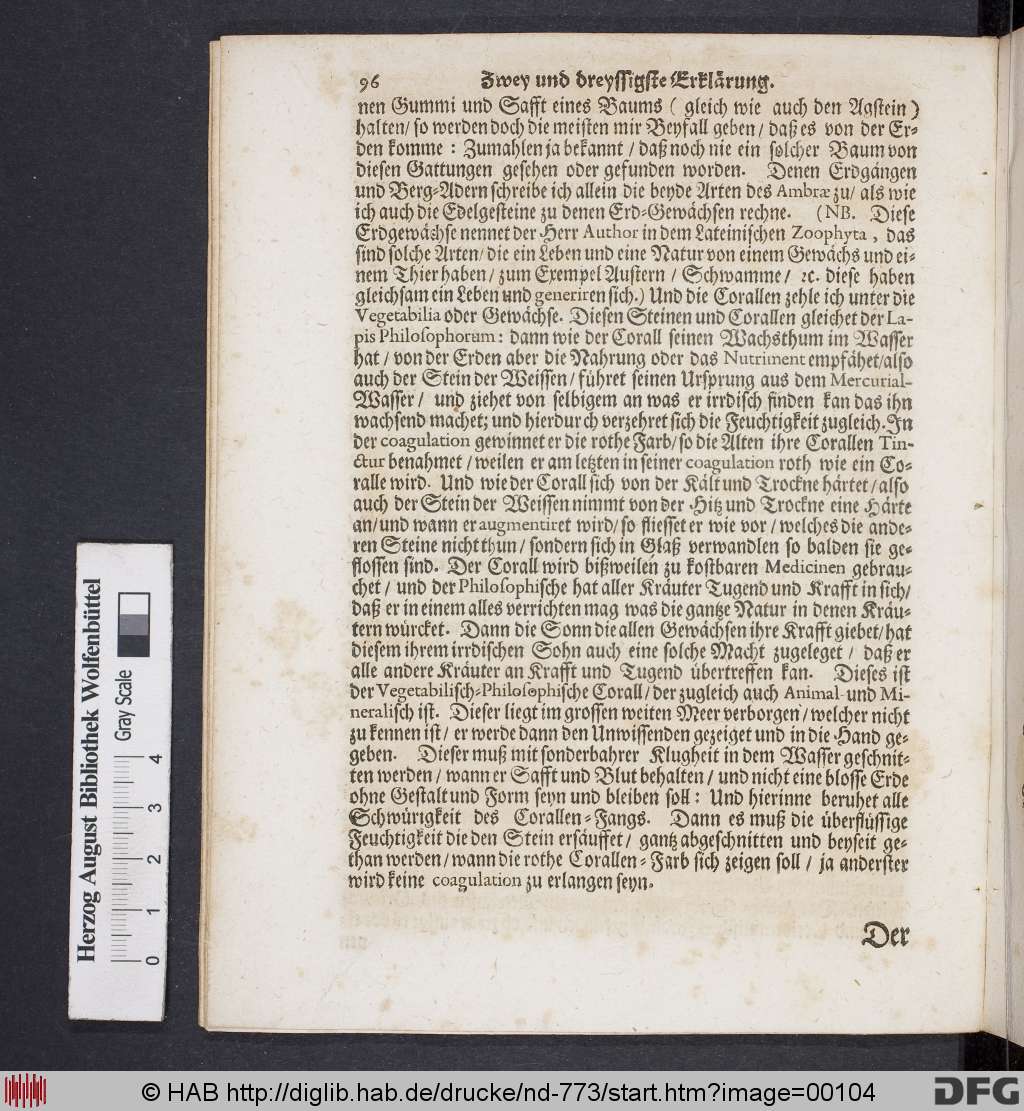 96 Zwey und dreyssigste Erklärung.
nen Gummi und Safft eines Baums ( gleich wie auch den Agstein )
halten/ so werden doch die meisten mir Beyfall geben / daß es von der Er-
den komme : Zumahlen ja bekannt / daß noch nie ein solcher Baum von
diesen Gattungen gesehen oder gefunden worden. Denen Erdgängen
und Berg-Adern schreibe ich allein die beyde Arten des Ambræ zu/ als wie
ich auch die Edelgesteine zu denen Erd-Gewächsen rechne. (NB. Diese
Erdgewächse nennet der Herr Author in dem Lateinischen Zoophyta, das
sind solche Arten/ die ein Leben und eine Natur von einem Gewächs und ei-
nem Thier haben/ zum Exempel Austern / Schwamme/ ꝛc. diese haben
gleichsam ein Leben und generiren sich.) Und die Corallen zehle ich unter die
Vegetabilia oder Gewächse. Diesen Steinen und Corallen gleichet der La-
pis Philosophorum: dann wie der Corall seinen Wachsthum im Wasser
hat / von der Erden aber die Nahrung oder das Nutriment empfähet/also
auch der Stein der Weissen/ führet seinen Ursprung aus dem Mercurial-
Wasser / und ziehet von selbigem an was er irrdisch finden kan das ihn
wachsend machet; und hierdurch verzehret sich die Feuchtigkeit zugleich. In
der coagulation gewinnet er die rothe Farb/ so die Alten ihre Corallen Tin-
ctur benahmet / weilen er am letzten in seiner coagulation roth wie ein Co-
ralle wird. Und wie der Corall sich von der Kält und Trockne härtet / also
auch der Stein der Weissen nimmt von der Hitz und Trockne eine Härte
an/ und wann er augmentiret wird/ so fliesset er wie vor / welches die ande-
ren Steine nicht thun / sondern sich in Glaß verwandlen so balden sie ge-
flossen sind. Der Corall wird bißweilen zu kostbaren Medicinen gebrau-
chet / und der Philosophische hat aller Kräuter Tugend und Krafft in sich/
daß er in einem alles verrichten mag was die gantze Natur in denen Kräu-
tern würcket. Dann die Sonn die allen Gewächsen ihre Krafft giebet/ hat
diesem ihrem irrdischen Sohn auch eine solche Macht zugeleget / daß er
alle andere Kräuter an Krafft und Tugend übertreffen kan. Dieses ist
der Vegetabilisch-Philosophische Corall/ der zugleich auch Animal- und Mi-
neralisch ist. Dieser liegt im grossen weiten Meer verborgen / welcher nicht
zu kennen ist / er werde dann den Unwissenden gezeiget und in die Hand ge-
geben. Dieser muß mit sonderbahrer Klugheit in dem Wasser geschnit-
ten werden / wann er Safft und Blut behalten / und nicht eine blosse Erde
ohne Gestalt und Form seyn und bleiben soll: Und hierinne beruhet alle
Schwürigkeit des Corallen-Fangs. Dann es muß die überflüssige
Feuchtigkeit die den Stein ersäuffet / gantz abgeschnitten und beyseit ge-
than werden / wann die rothe Corallen-Farb sich zeigen soll / ja anderster
wird keine coagulation zu erlangen seyn.
Der
Herzog August Bibliothek Wolfenbüttel
Gray Scale
0 1 2 3 4
© HAB http://diglib.hab.de/drucke/nd-773/start.htm?image=00104
DFG